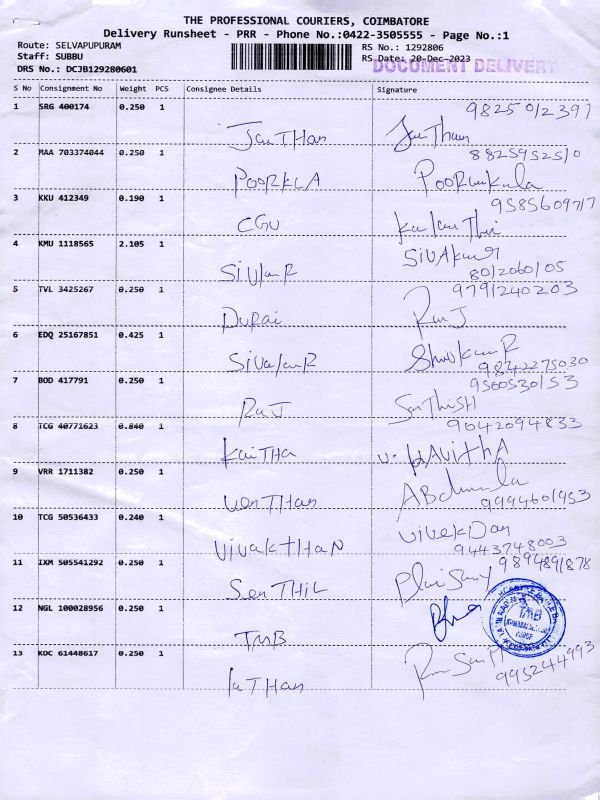 THE PROFESSIONAL COURIERS, COIMBATORE
Delivery Runsheet - PRR - Phone No.:0422-3505555 - Page No.:1
Route: SELVAPUPURAM
Staff: SUBBU
DRS No.: DCJB129280601
RS No.: 1292806
RS Date: 20-Dec-2023
DOCUMENT DELIVERY
S No Consignment No Weight PCS Consignee Details Signature
1 SRG 400174 0.250 1 9825012397
2 MAA 703374044 0.250 1 POORKLA 8825952510
3 KKU 412349 0.190 1 CGU 9585609717
4 KMU 1118565 2.105 1 8012060105
5 TVL 3425267 0.250 1 DURAI 9791240203
6 EDQ 25167851 0.425 1 9842275030
7 BOD 417791 0.250 1 RAJ SanThiSH 9500530153
8 TCG 40771623 0.840 1 9042094833
KaiTHa V. KAVITHA
9 VRR 1711382 0.250 1 VenTHan ABdunala 9994601953
10 TCG 50536433 0.240 1 VivaKTHAN vivekDan 9443748003
11 IXM 505541292 0.250 1 SenTHIL 9894891878
12 NGL 100028956 0.250 1 TMB
TMB
13 KOC 61448617 0.250 1 laTHan 995244993